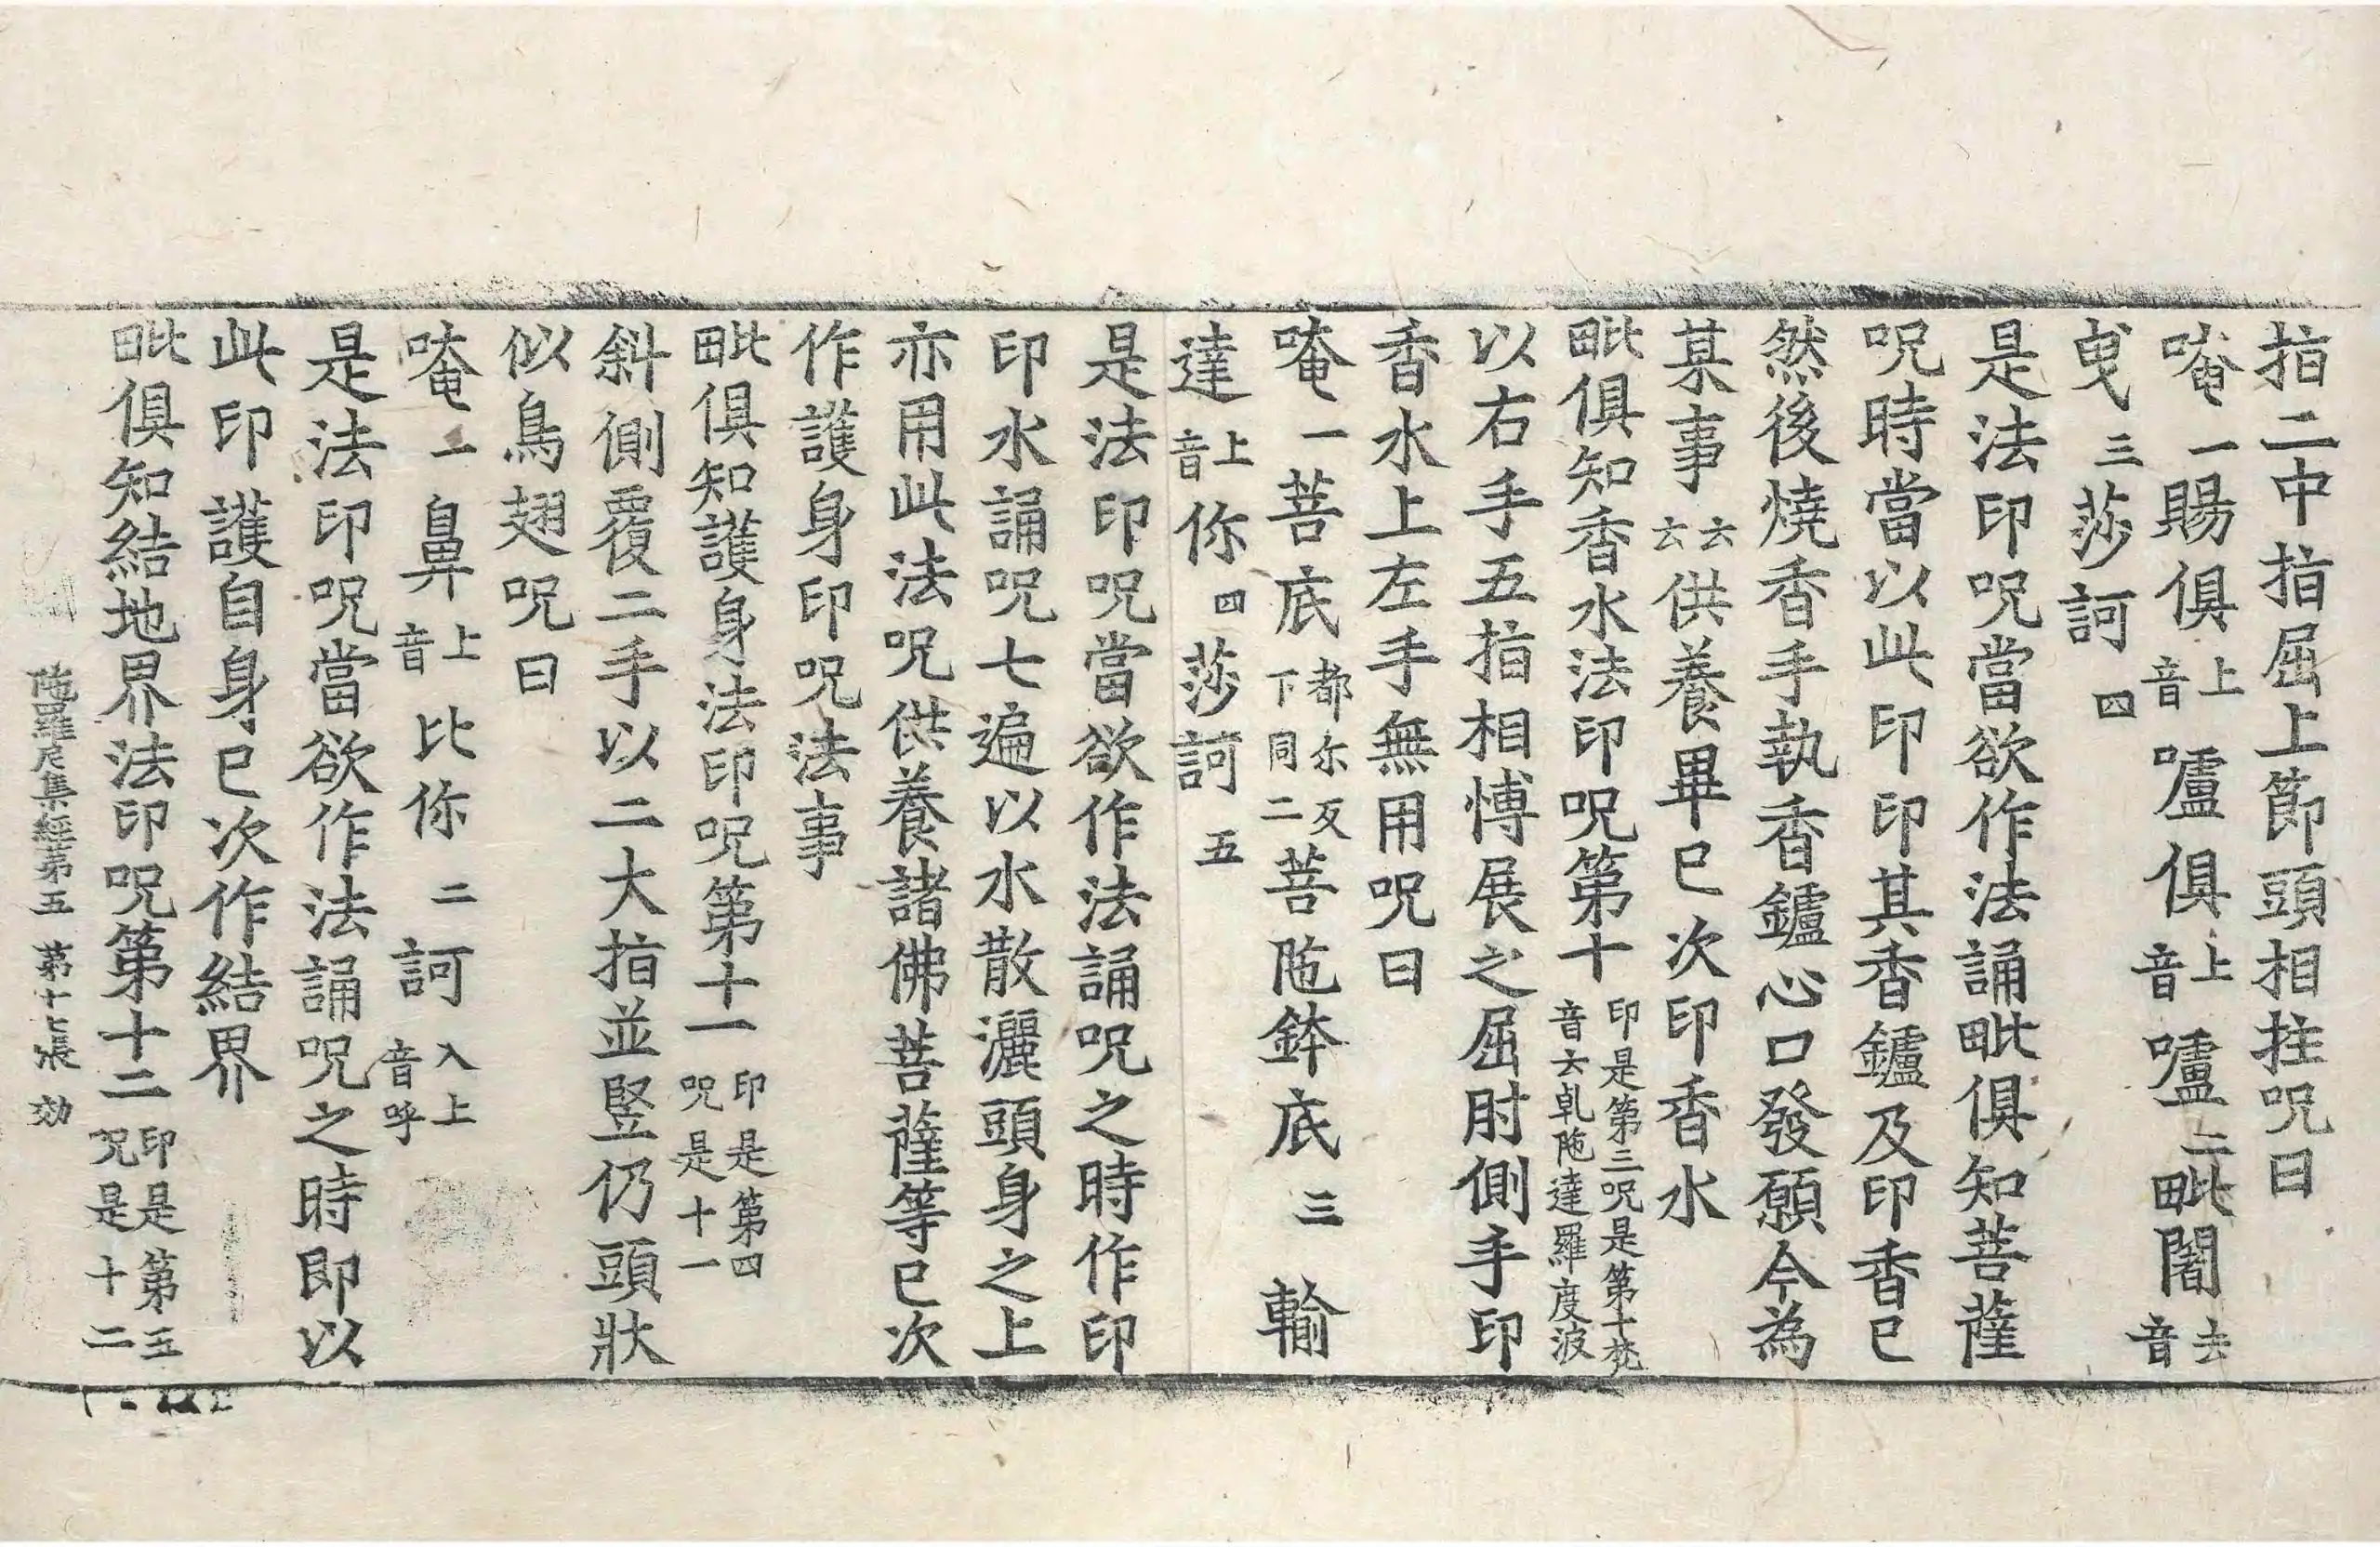 指二中指屈上節頭相拄呪曰
唵一賜俱上音嚧俱上音嚧二毗闍去音
曳三莎訶四
是法印呪當欲作法誦毗俱知菩薩
呪時當以此印印其香鑪及印香已
然後燒香手執香鑪心口發願今為
某事云云供養畢已次印香水
毗俱知香水法印呪第十印是第三呪是第十梵音云軋陁達羅度波
以右手五指相愽展之屈肘側手印
香水上左手無用呪曰
唵一菩底都尔反下同二菩陁鉢底三輸
達上音你四莎訶五
是法印呪當欲作法誦呪之時作印
印水誦呪七遍以水散灑頭身之上
亦用此法呪供養諸佛菩薩等已次
作護身印呪法事
毗俱知護身法印呪第十一印是第四呪是十一
斜側覆二手以二大指並竪仍頭狀
似鳥翅呪曰
唵一鼻上音比你二訶入上音呼
是法印呪當欲作法誦呪之時即以
此印護自身已次作結界
毗俱知結地界法印呪第十二印是第五呪是十二
陁羅尼集經第五 第十七張 効